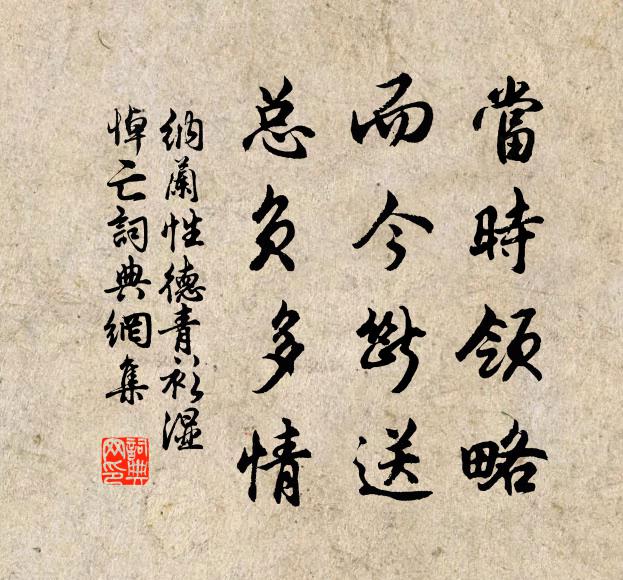 當時領略
而今斷送
总負多情
納蘭性德青衫濕
悼亡詞典網集
詞典
网印